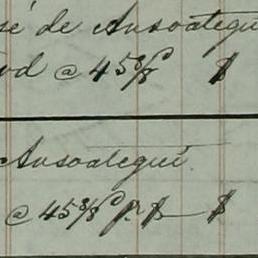 sé de Ansoategui
od @ 45 3/8 $
Ansoategui
@ 45 3/8 pr $ $